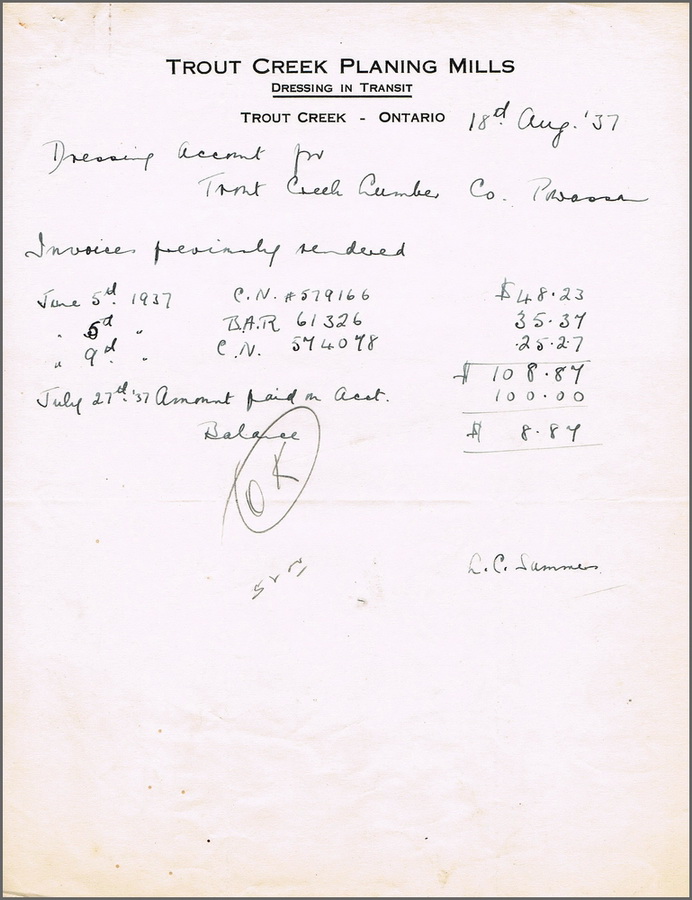 TROUT CREEK PLANING MILLS
DRESSING IN TRANSIT
TROUT CREEK - ONTARIO 18d Aug. '37
Dressing Account for
Trout Creek Lumber Co. Powassan
Invoices previously rendered
June 5d. 1937 C.N. #579166 $48.23
" 5d " B.A.R 61326 35.37
" 9d " C.N. 574078 25.27
$ 108.87
July 27th '37 Amount paid on Acct. 100.00
Balance $ 8.87
OK
L.C. Summers